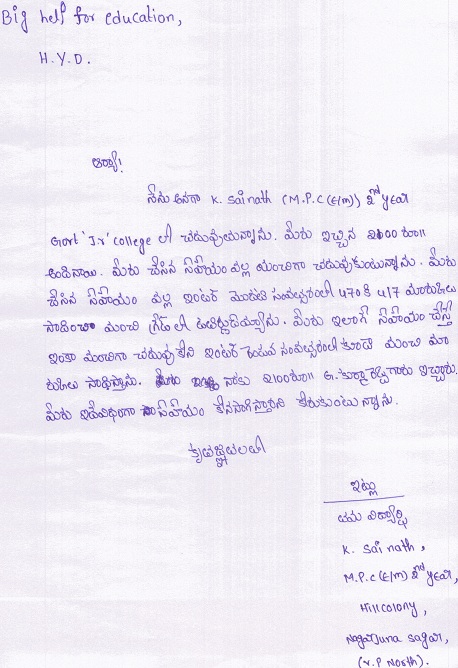 Big help for education,
H.Y.D.
ఆర్యా!
నేను అనగా K. Sai nath (M.P.C (E/m)) 2nd year
Govt 'Jr' college లో చదువుచున్నాను. మీరు ఇచ్చిన 2100 రూ॥
అందినాయి. మీరు చేసిన సహాయం వల్ల మంచిగా చదువుకుంటున్నాను. మీరు
చేసిన సహాయం వల్ల ఇంటర్ మొదటి సంవత్సరంలో 470 కి 417 మార్కులు
సాదించా మంచి గ్రేడ్ లో ఉత్తీర్ణుడయ్యాను. మీరు ఇలాగే సహాయం చేస్తే
ఇంకా మంచిగా చదువుకొని ఇంటర్ రెండవ సంవత్సరంలో కూడా మంచి మా
ర్కులు సాధిస్తాను. మీరు నాకు 2100రూ॥ గారు ఇచ్చారు.
మీరు ఇదేవిధంగా సహాయం కొనసాగిస్తారని కోరుకుంటున్నాను.
కృతజ్ఞతలతో
ఇట్లు
తమ విద్యార్థి
K. Sai nath,
M.P.C (E/m) 2nd year,
Hill colony,
Nagarjuna sagar,
(V.P North).